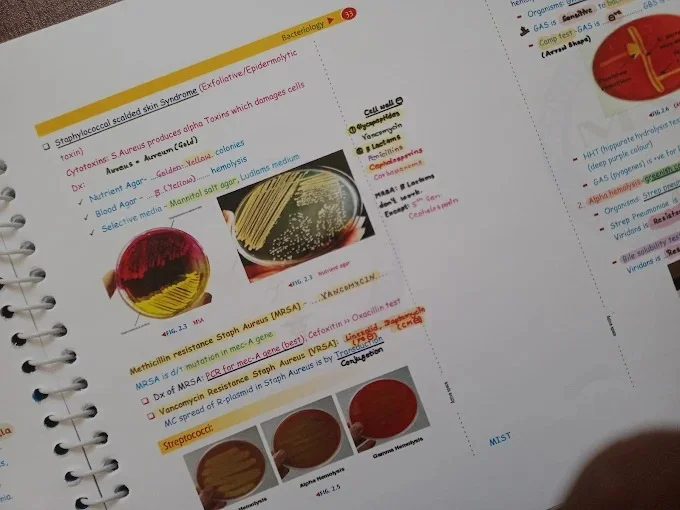 Bacteriology
33
Staphylococcal scalded skin Syndrome (Exfoliative/Epidermolytic
toxin)
Cytotoxins: S.Aureus produces alpha Toxins which damages cells
Aureus = Aureum (Gold)
Dx:
Nutrient Agar- ...Golden. Yellow. colonies
Blood Agar - ...β (Yellow).... hemolysis
Selective media - Mannitol salt agar, Ludlams medium
FIG. 2.3 MSA
FIG. 2.3 Nutrient agar
Methicillin resistance Staph Aureus [MRSA] - ...VANCOMYCIN...
MRSA is d/t mutation in mec-A gene
Dx of MRSA: PCR for mec-A gene (best), Cefoxitin >> Oxacillin test
Vancomycin Resistance Staph Aureus [VRSA]: Linezolid, Daptomycin
MC spread of R-plasmid in Staph Aureus is by Transduction
Conjugation
Streptococci:
Hemolysis
Alpha Hemolysis
Gamma Hemolysis
FIG. 2.5
Cell wall ⊖
① Glycopeptides
Vancomycin
② β Lactams
Penicillins
Cephalosporins
Carbapenems
MRSA: β Lactams
don't work.
Except: 5th Gen
Cephalosporin
MIST
Organisms:
GAS is Sensitive to
Camp test - GAS is ⊖ve GBS
(Arrow Shape)
FIG. 2.6
HHT (hippurate hydrolysis test
(deep purple colour)
GAS (pyogenes) is +ve for
2. Alpha hemolysis - greenish
Organisms: Strep
Strep Pneumoniae is
Viridans is Resistant
Bile solubility test
Viridans is